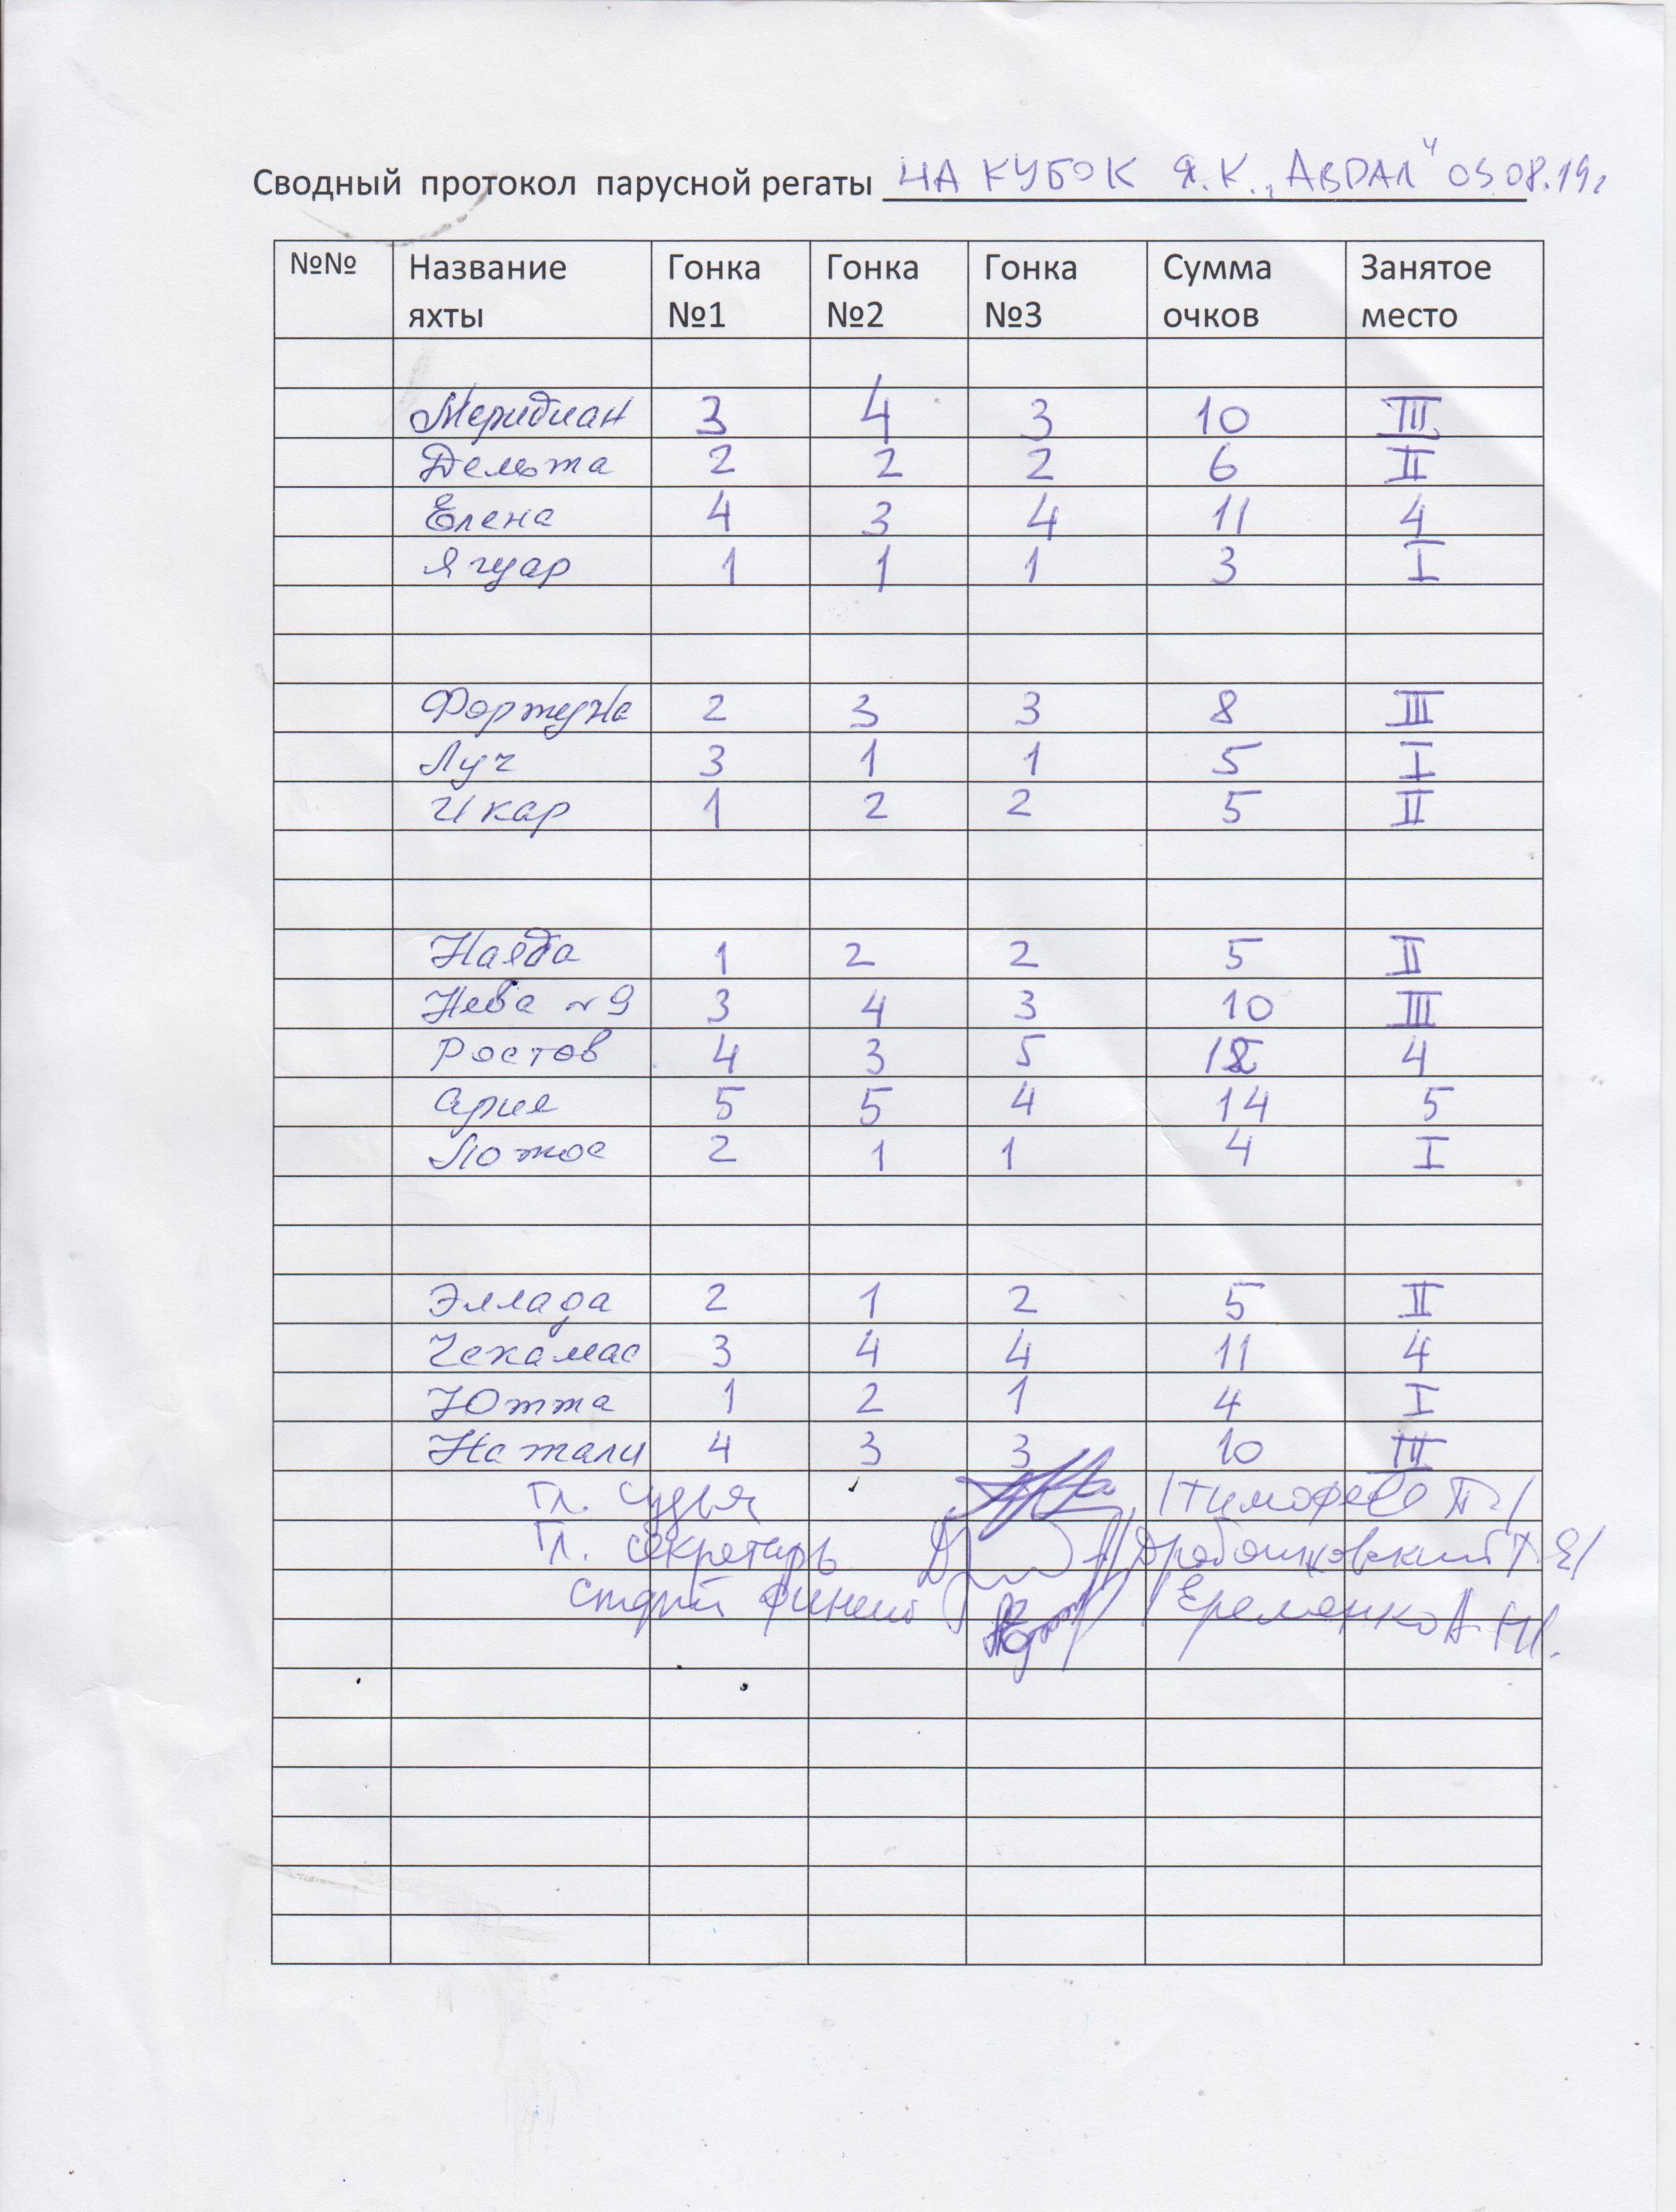 Сводный протокол парусной регаты НА КУБОК Я.К. „АВРАЛ" 03.08.19г
№№ Название яхты Гонка №1 Гонка №2 Гонка №3 Сумма очков Занятое место
Меридиан 3 4 3 10 III
Дельта 2 2 2 6 II
Елена 4 3 4 11 4
Ягуар 1 1 1 3 I
Фортуна 2 3 3 8 III
Луч 3 1 1 5 I
Икар 1 2 2 5 II
Наяда 1 2 2 5 II
Нева №9 3 4 3 10 III
Ростов 4 3 5 12 4
Ария 5 5 4 14 5
Лотос 2 1 1 4 I
Эллада 2 1 2 5 II
Чекамас 3 4 4 11 4
Ютта 1 2 1 4 I
Натали 4 3 3 10 III
Гл. судья
Гл. секретарь
Еременко А.